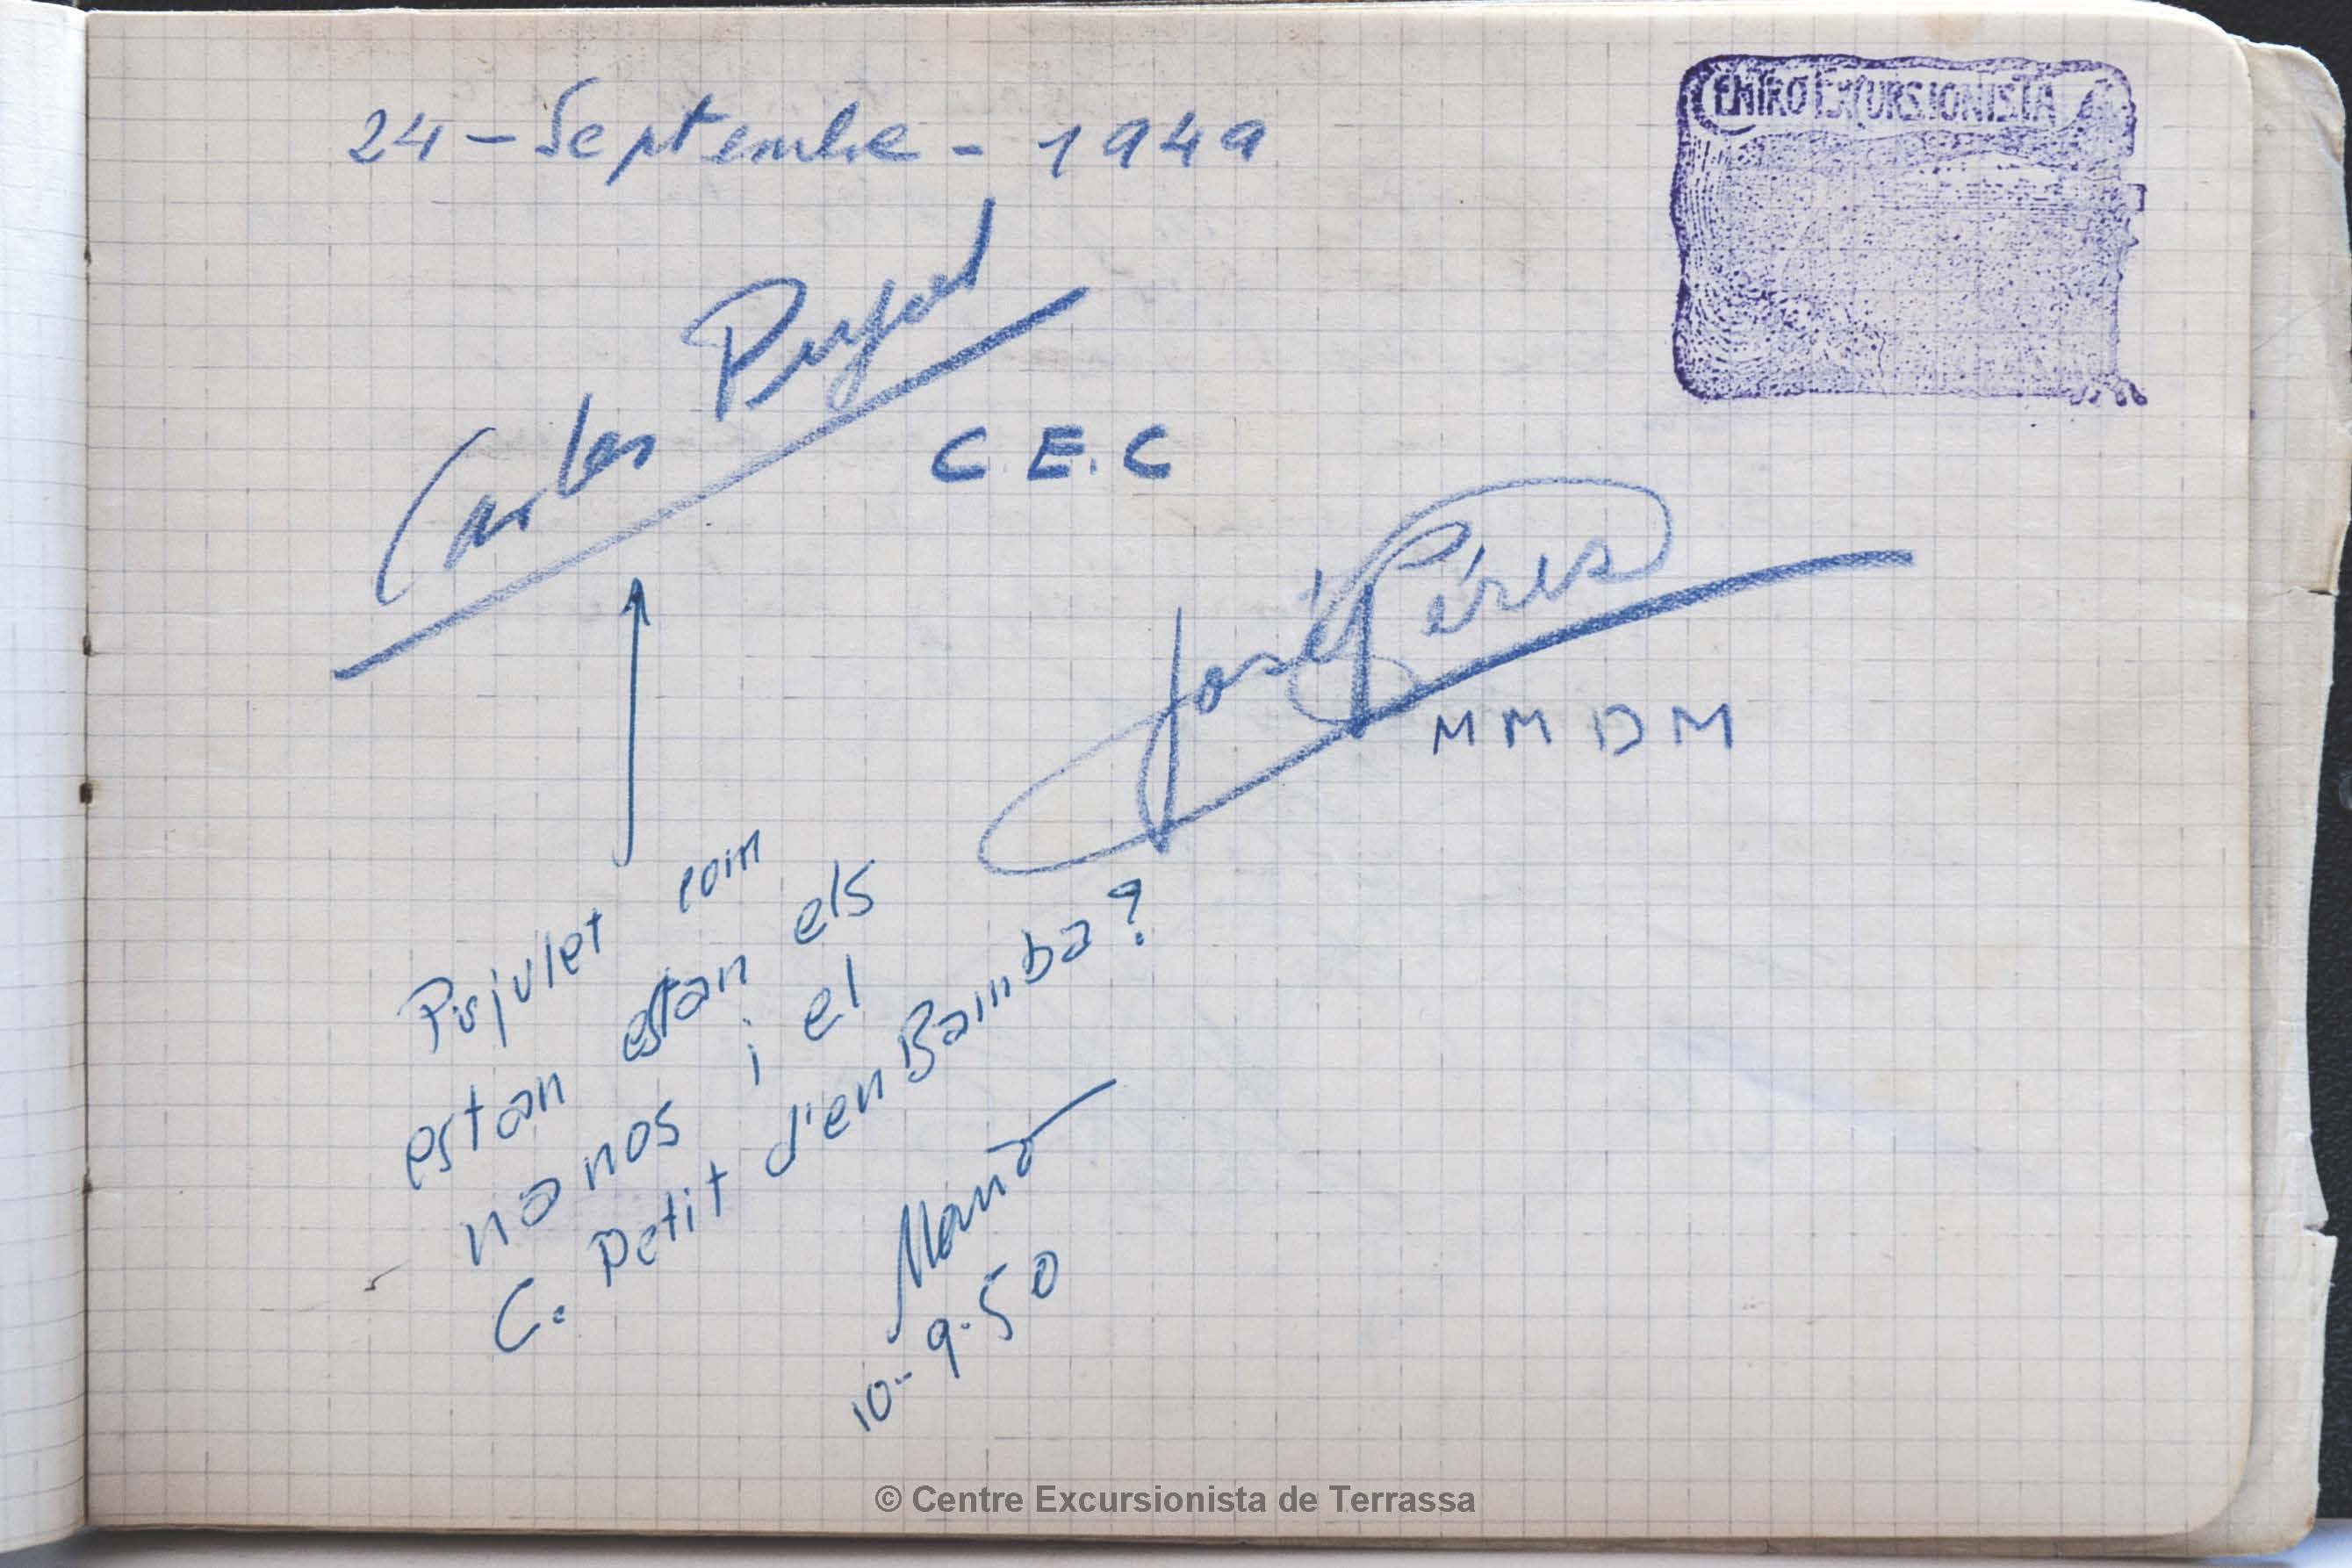 24 - Septembre - 1949
CENTRO EXCURSIONISTA
Carles Pujol
C. E. C
José Péres
M M D M
Pujulet com
estan estan els
nanos i el
C. Petit d'en Bamba?
10-9-50
© Centre Excursionista de Terrassa